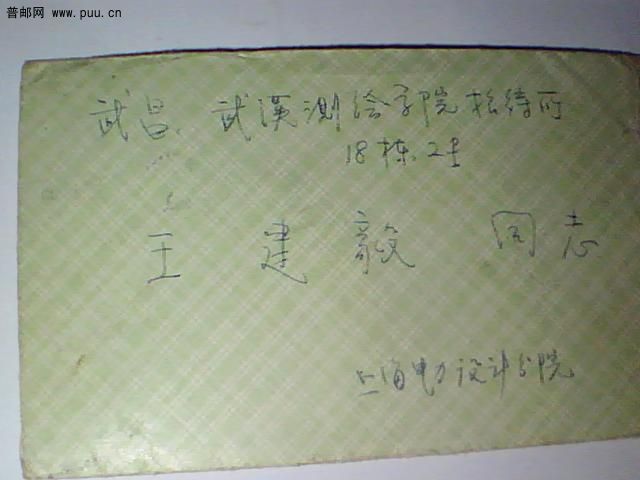 普邮网 www.puu.cn
武昌. 武汉测绘学院招待所
18栋2号
王建毅 同志
上海电力设计分院